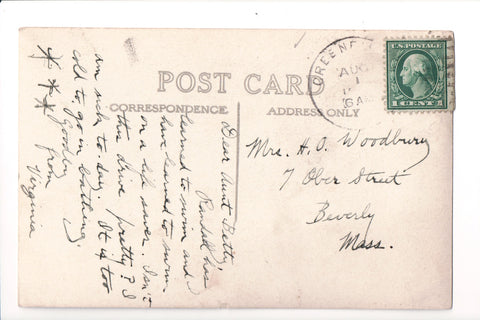 POST CARD
CORRESPONDENCE
ADDRESS ONLY
GREENF
AUG
1
6 AM
U.S. POSTAGE
1 CENT 1
Mrs. H. O. Woodbury
7 Ober Street
Beverly
Mass.
Dear Aunt Patty,
has
learned to swim and
have learned to swim
on a life saver. Isn't
this drive pretty? I
am sick to day. It is too
cold to go in bathing.
Goodby
from
Virginia